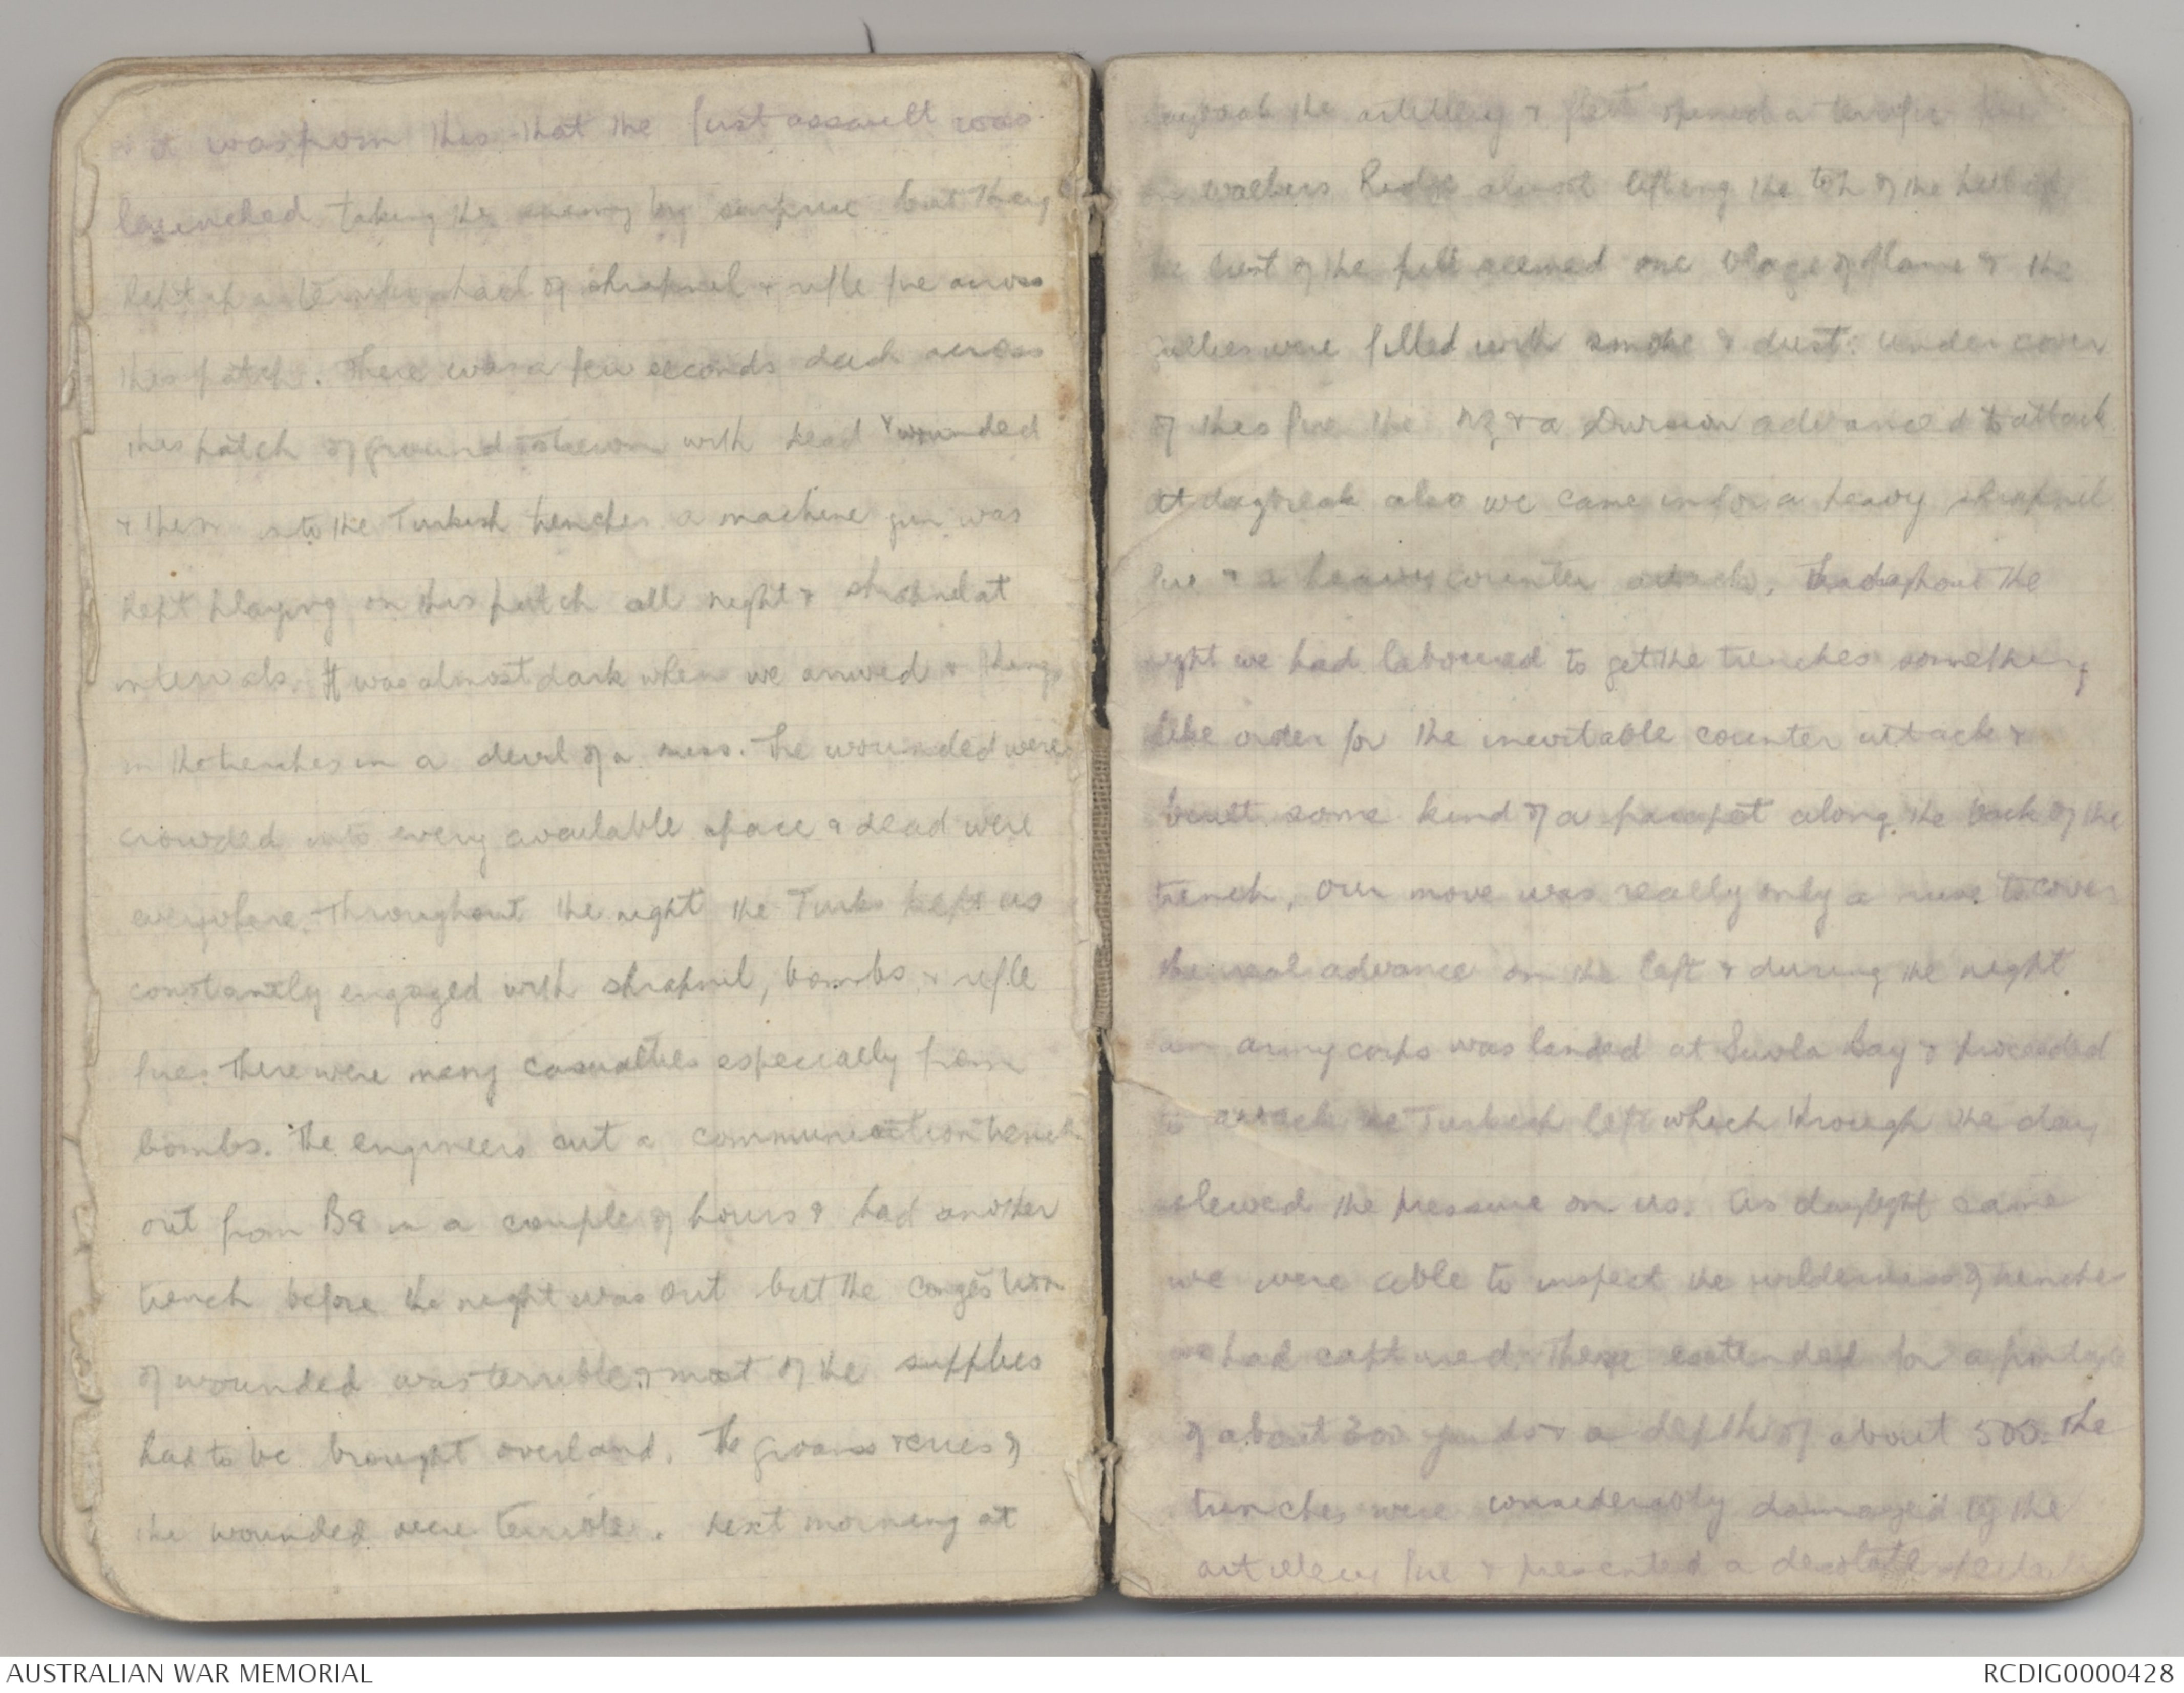 & it was from this that the first assault was
launched taking the enemy by surprise but they
kept up a terrific hail of shrapnel & rifle fire across
this patch. There was a few seconds dash across
this patch of ground strewn with dead & wounded
& then into the Turkish trenches a machine gun was
kept playing on this patch all night & shrapnel at
intervals. It was almost dark when we arrived & things
in the trenches in a devil of a mess. The wounded were
crowded into every available space & dead were
everywhere. Throughout the night the Turks kept us
constantly engaged with shrapnel, bombs, & rifle
fire. There were many casualties especially from
bombs. The engineers cut a communication trench
out from B8 in a couple of hours & had another
trench before the night was out but the congestion
of wounded was terrible & most of the supplies
had to be brought overland. The groans & cries of
the wounded were terrible. Next morning at
daybreak the artillery & fleet opened a terrific fire
on Walkers Ridge almost lifting the top of the hill off
the crest of the hill seemed one blaze of flame & the
gullies were filled with smoke & dust: under cover
of this fire the NZ & A Division advanced to attack
At daybreak also we came in for a heavy shrapnel
fire & a heavy counter attack. Throughout the
night we had laboured to get the trenches something
like order for the inevitable counter attack &
built some kind of a parapet along the back of the
trench, our move was really only a ruse to cover
the real advance on the left & during the night
an army corps was landed at Suvla Bay & proceeded
to attack the Turkish left which through the day
slewed the pressure on us. As daylight came
we were able to inspect the wilderness of trenches
we had captured. These extended for a frontage
of about 300 yards & a depth of about 500. The
trenches were considerably damaged by the
artillery fire & presented a desolate